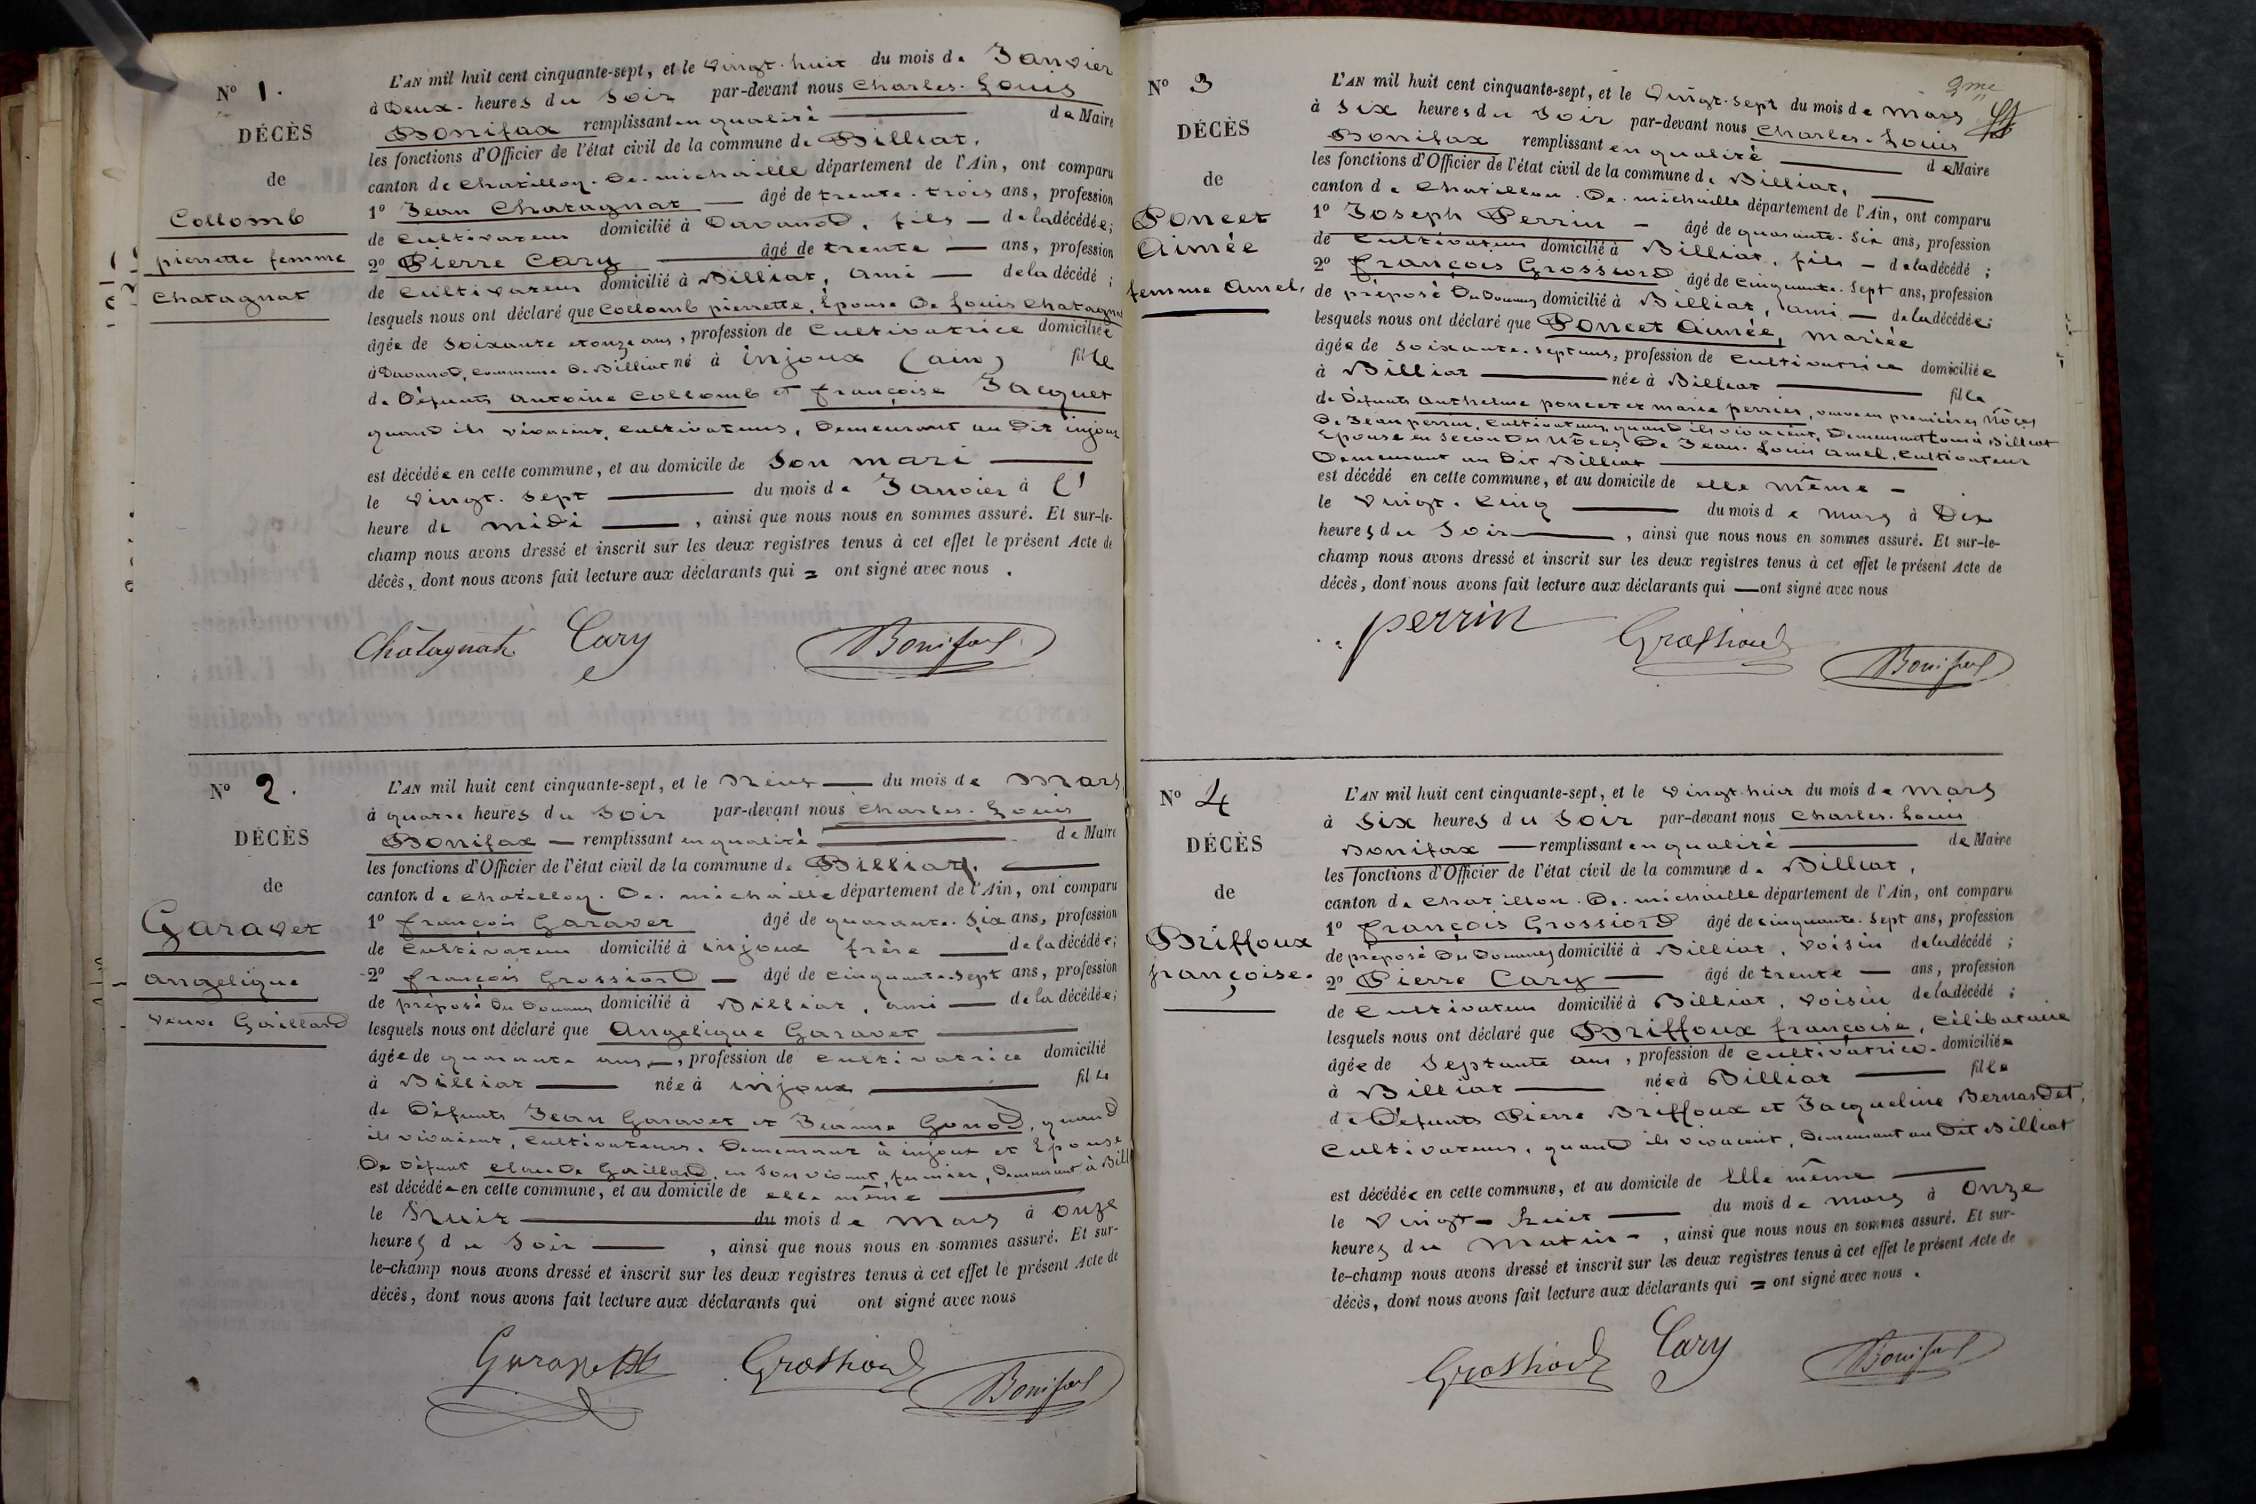 N° 1.
DÉCÈS
de
Collomb
pierrette femme
Chatagnat
L'AN mil huit cent cinquante-sept, et le vingt-huit du mois de Janvier
à Deux heures du Soir par-devant nous Charles-Louis
Bonifax remplissant en qualité de Maire
les fonctions d'Officier de l'état civil de la commune de Billiat,
canton de Chatillon-De-michaille département de l'Ain, ont comparu
1° Jean Chatagnat âgé de trente-trois ans, profession
de Cultivateur domicilié à Davanod, fils de la décédée;
2° Pierre Cary âgé de trente ans, profession
de Cultivateur domicilié à Billiat, ami de la décédé;
lesquels nous ont déclaré que Collomb pierrette, Epouse De Louis Chatagnat
âgée de Soixante et onze ans, profession de Cultivatrice domiciliée
à Davanod, Commune De Billiat né à injoux (ain) fille
de Défunts Antoine Collomb et françoise Jacquet
quand ils vivaient, cultivateurs, Demeurant au Dit injoux
est décédée en cette commune, et au domicile de Son mari
le vingt-Sept du mois de Janvier à l'
heure de midi, ainsi que nous nous en sommes assuré. Et sur-le-
champ nous avons dressé et inscrit sur les deux registres tenus à cet effet le présent Acte de
décès, dont nous avons fait lecture aux déclarants qui = ont signé avec nous.
Châtagnat Cary Bonifax
N° 2.
DÉCÈS
de
Garavet
angelique
veuve Gaillard
L'AN mil huit cent cinquante-sept, et le Neuf du mois de Mars
à quatre heures du Soir par-devant nous Charles-Louis
Bonifax remplissant en qualité de Maire
les fonctions d'Officier de l'état civil de la commune de Billiat,
canton de Chatillon-De-michaille département de l'Ain, ont comparu
1° françois Garavet âgé de quarante-Six ans, profession
de Cultivateur domicilié à injoux frère de la décédée;
2° françois Grossiord âgé de Cinquante-Sept ans, profession
de préposé Des Douanes domicilié à Billiat, ami de la décédée;
lesquels nous ont déclaré que Angelique Garavet
âgée de quarante ans, profession de Cultivatrice domicilié
à Billiat née à injoux fille
de Défunts Jean Garavet et Jeanne Gonod, quand
ils vivaient, cultivateurs, Demeurant à injoux et Epouse
De Défunt Claude Gaillard, en Son vivant, fermier, Demeurant à Bill
est décédée en cette commune, et au domicile de elle même
le Huit du mois de Mars à onze
heures du Soir, ainsi que nous nous en sommes assuré. Et sur-
le-champ nous avons dressé et inscrit sur les deux registres tenus à cet effet le présent Acte de
décès, dont nous avons fait lecture aux déclarants qui ont signé avec nous
Garavet Grossiord Bonifax
2me
N° 3
DÉCÈS
de
Poncet
Aimée
femme Amel,
L'AN mil huit cent cinquante-sept, et le Vingt-Sept du mois de Mars
à Six heures du Soir par-devant nous Charles-Louis
Bonifax remplissant en qualité de Maire
les fonctions d'Officier de l'état civil de la commune de Billiat,
canton de Chatillon-De-michaille département de l'Ain, ont comparu
1° Joseph Perrin âgé de quarante-Six ans, profession
de Cultivateur domicilié à Billiat, fils de la décédé;
2° françois Grossiord âgé de Cinquante-Sept ans, profession
de préposé Des Douanes domicilié à Billiat, ami de la décédée;
lesquels nous ont déclaré que Poncet Aimée, mariée
âgée de Soixante-Sept ans, profession de Cultivatrice domiciliée
à Billiat née à Billiat fille
de Défunts Anthelme poncet et marie perrier, veuve en premières Nôces
De Jean perrin, Cultivateurs, quand ils vivaient, Demeurant tous à Billiat
Epouse en Secondes Nôces De Jean-Louis Amel, Cultivateur
Demeurant au Dit Billiat
est décédé en cette commune, et au domicile de elle même
le Vingt-Cinq du mois de Mars à Dix
heures du Soir, ainsi que nous nous en sommes assuré. Et sur-le-
champ nous avons dressé et inscrit sur les deux registres tenus à cet effet le présent Acte de
décès, dont nous avons fait lecture aux déclarants qui — ont signé avec nous
perrin Grossiord Bonifax
N° 4
DÉCÈS
de
Briffoux
françoise.
L'AN mil huit cent cinquante-sept, et le Vingt-huit du mois de Mars
à Six heures du Soir par-devant nous Charles-Louis
Bonifax remplissant en qualité de Maire
les fonctions d'Officier de l'état civil de la commune de Billiat,
canton de Chatillon-De-michaille département de l'Ain, ont comparu
1° françois Grossiord âgé de Cinquante-Sept ans, profession
de préposé Des Douanes domicilié à Billiat, Voisin de la décédé;
2° Pierre Cary âgé de trente ans, profession
de Cultivateur domicilié à Billiat, Voisin de la décédé;
lesquels nous ont déclaré que Briffoux françoise, Célibataire
âgée de Septante ans, profession de Cultivatrice domiciliée
à Billiat née à Billiat fille
de Défunts Pierre Briffoux et Jacqueline Bernardet,
Cultivateurs, quand ils vivaient, Demeurant au Dit Billiat
est décédée en cette commune, et au domicile de Elle même
le Vingt-huit du mois de Mars à Onze
heures du Matin, ainsi que nous nous en sommes assuré. Et sur-
le-champ nous avons dressé et inscrit sur les deux registres tenus à cet effet le présent Acte de
décès, dont nous avons fait lecture aux déclarants qui = ont signé avec nous.
Grossiord Cary Bonifax